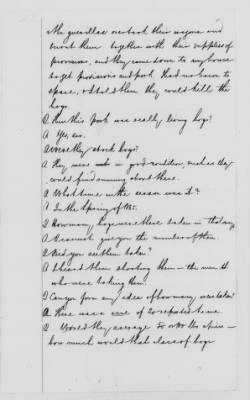 the guerillas overtook their wagons and
burnt them together with their supplies of
provisions, and they came down to my house
to get provisions and pork. I had no bacon to
spare, & I told them they could kill the
hogs.
Q Then this pork was really living hogs?
A Yes, sir.
Q Were they stock hogs?
A They were in good condition, such as they
could find running about there.
Q What time in the season was it?
A In the Spring of
Q How many hogs were there taken in that way
A I cannot give you the number of them.
Q Did you see them taken?
A I heard them shooting them – the men
who were taking them.
Q Can you form any idea of how many were taken?
A There was some of 20 reported to me
Q Would they average or 100 lbs apiece –
how much would that class of hogs